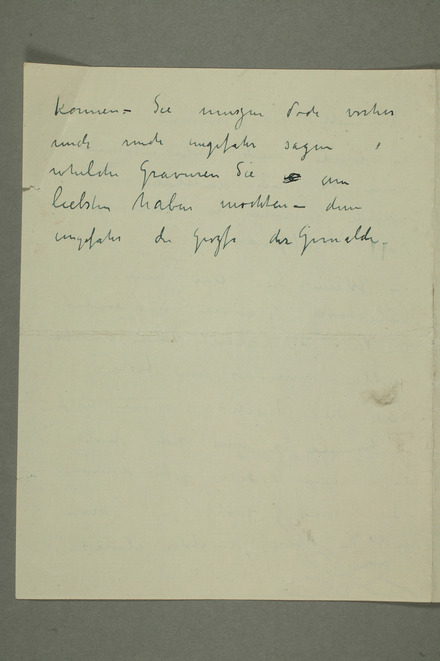 können – Sie müszen doch vorher
mich noch ungefähr sagen,
welche Gravuren Sie am
liebsten haben möchten – dem
ungefähr die Grösse der Gemälde.